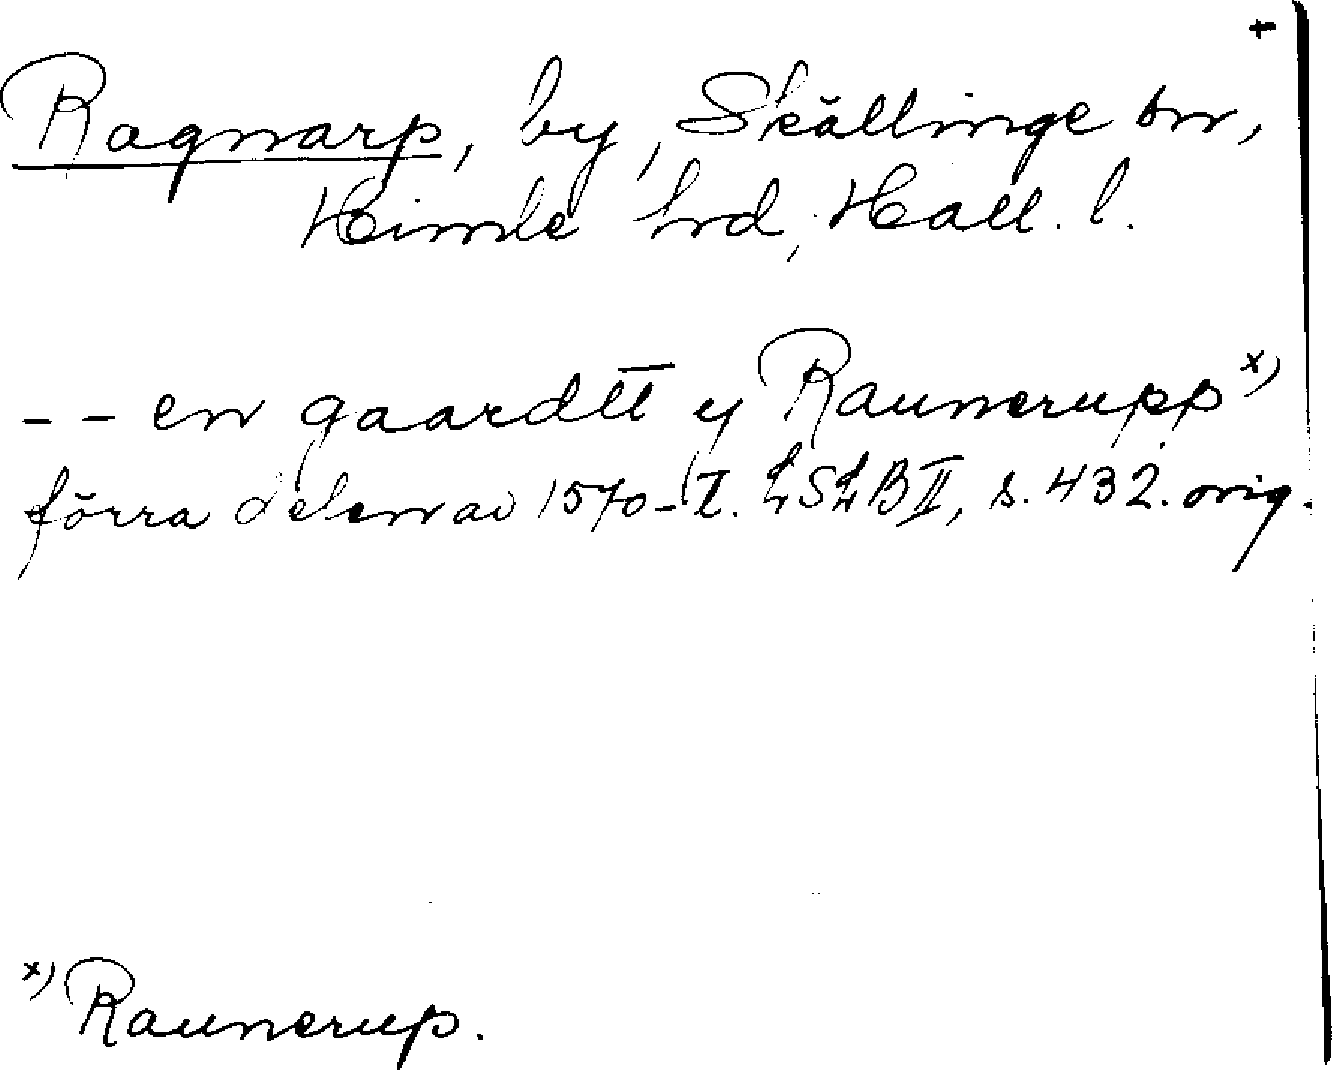 +
Ragnarp, by, Skällinge sn,
Himle hrd, Hall. l.
- - en gaardtt y Raunerupp x)
förra delen av 1570-t. LSLB II, s. 432. orig.
x) Raunerup.